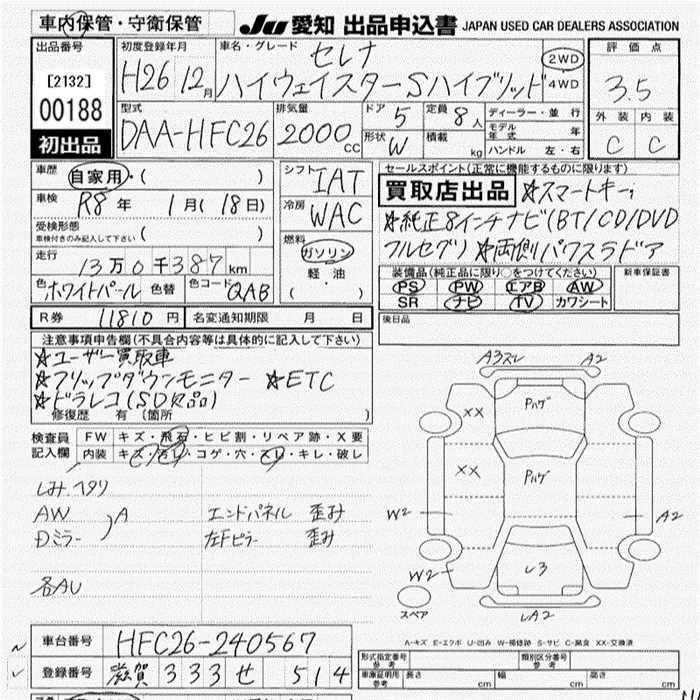 車内保管・守衛保管
JU 愛知 出品申込書 JAPAN USED CAR DEALERS ASSOCIATION
出品番号
[2132]
00188
初出品
初度登録年月
H26 12月
車名・グレード
セレナ
ハイウェイスターSハイブリッド
2WD
4WD
評価点
3.5
外装 内装
C C
型式
DAA-HFC26
排気量
2000cc
ドア 5
定員 8人
形状 W
積載 kg
ディーラー・並行
モデル年式 年
ハンドル 左・右
車歴 自家用・( )
車検 R8年 1月(18日)
受検形態
車検付きのみ記入して下さい ( )
走行 13万0千387km
色 ホワイトパール 色替 色コード QAB
シフト IAT
冷房 WAC
燃料
ガソリン
軽・油
( ・ )
セールスポイント(正常に機能するものに限ります)
買取店出品 ☆スマートキー
☆純正8インチナビ(BT/CD/DVD
フルセグ) ☆両側パワスラドア
装備品(純正品に限り○をつけてください)
PS PW エアB AW
SR ナビ TV カワシート
新車保証書
R券 11810円 名変通知期限 月 日
後日品
注意事項申告欄(不具合内容等は具体的に記入して下さい)
☆ユーザー買取車
☆フリップダウンモニター ☆ETC
☆ドラレコ(SD欠品)
修復歴 有(箇所 )
検査員記入欄
FW キズ・飛石・ヒビ割・リペア跡・X要
内装 キズ・汚レ・コゲ・穴・スレ・キレ・破し
しみ.ヘタリ
AW
Dミラー
A
エンドパネル 歪み
左Fピラー 歪み
各AU
A3スレ A2
Pハゲ
XX
XX
Pハゲ
W2
A2
W2
し3
LA2
スペア
A-キズ E-エクボ U-凹み W-補修跡 S-サビ C-腐食 XX-交換済
車台番号 HFC26-240567
登録番号 滋賀 333 せ 514
形式指定番号
参考
類別区分番号
参考
車庫証明用
参考
長さ cm 幅 cm 高さ cm